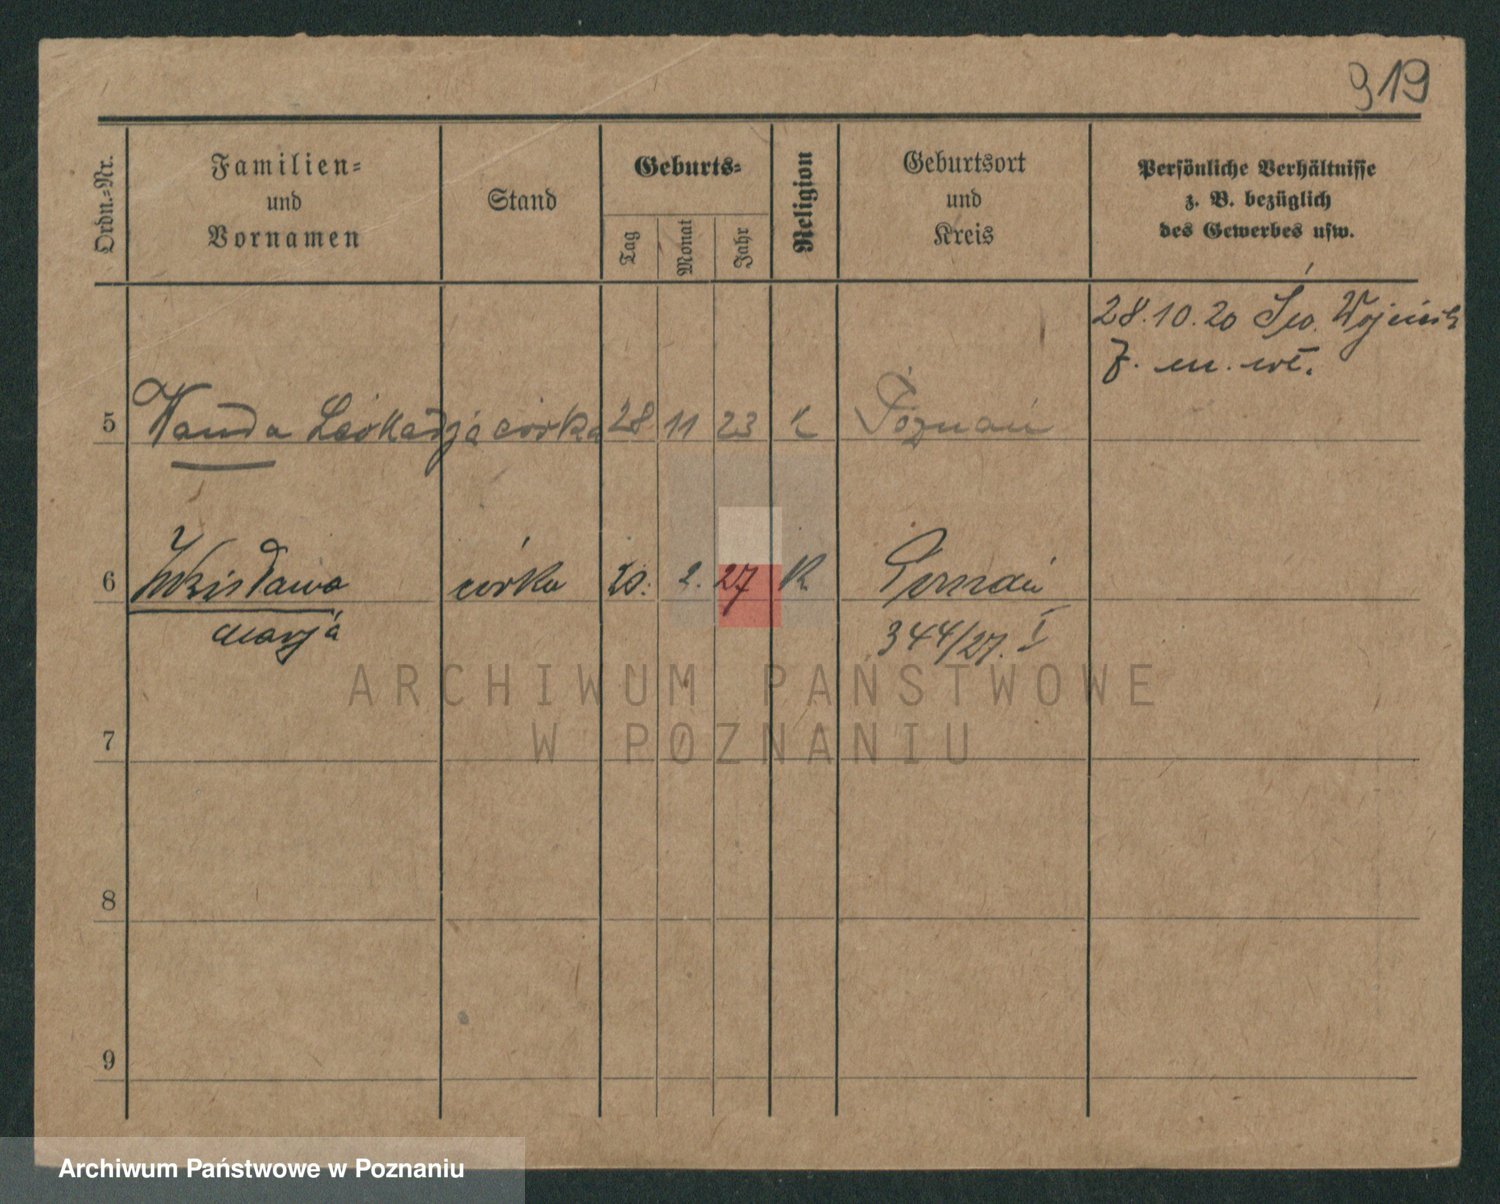 919
Ordn.-Nr.
Familien-
und
Vornamen
Stand
Geburts-
Tag
Monat
Jahr
Religion
Geburtsort
und
Kreis
Persönliche Verhältnisse
z. B. bezüglich
des Gewerbes usw.
28.10.20
5 Wanda Leokadja córka 28 11 23 k Poznań
6 córka 2. 27 K Poznań
Marja 344/27. I
7
8
9
ARCHIWUM PAŃSTWOWE
W POZNANIU
Archiwum Państwowe w Poznaniu